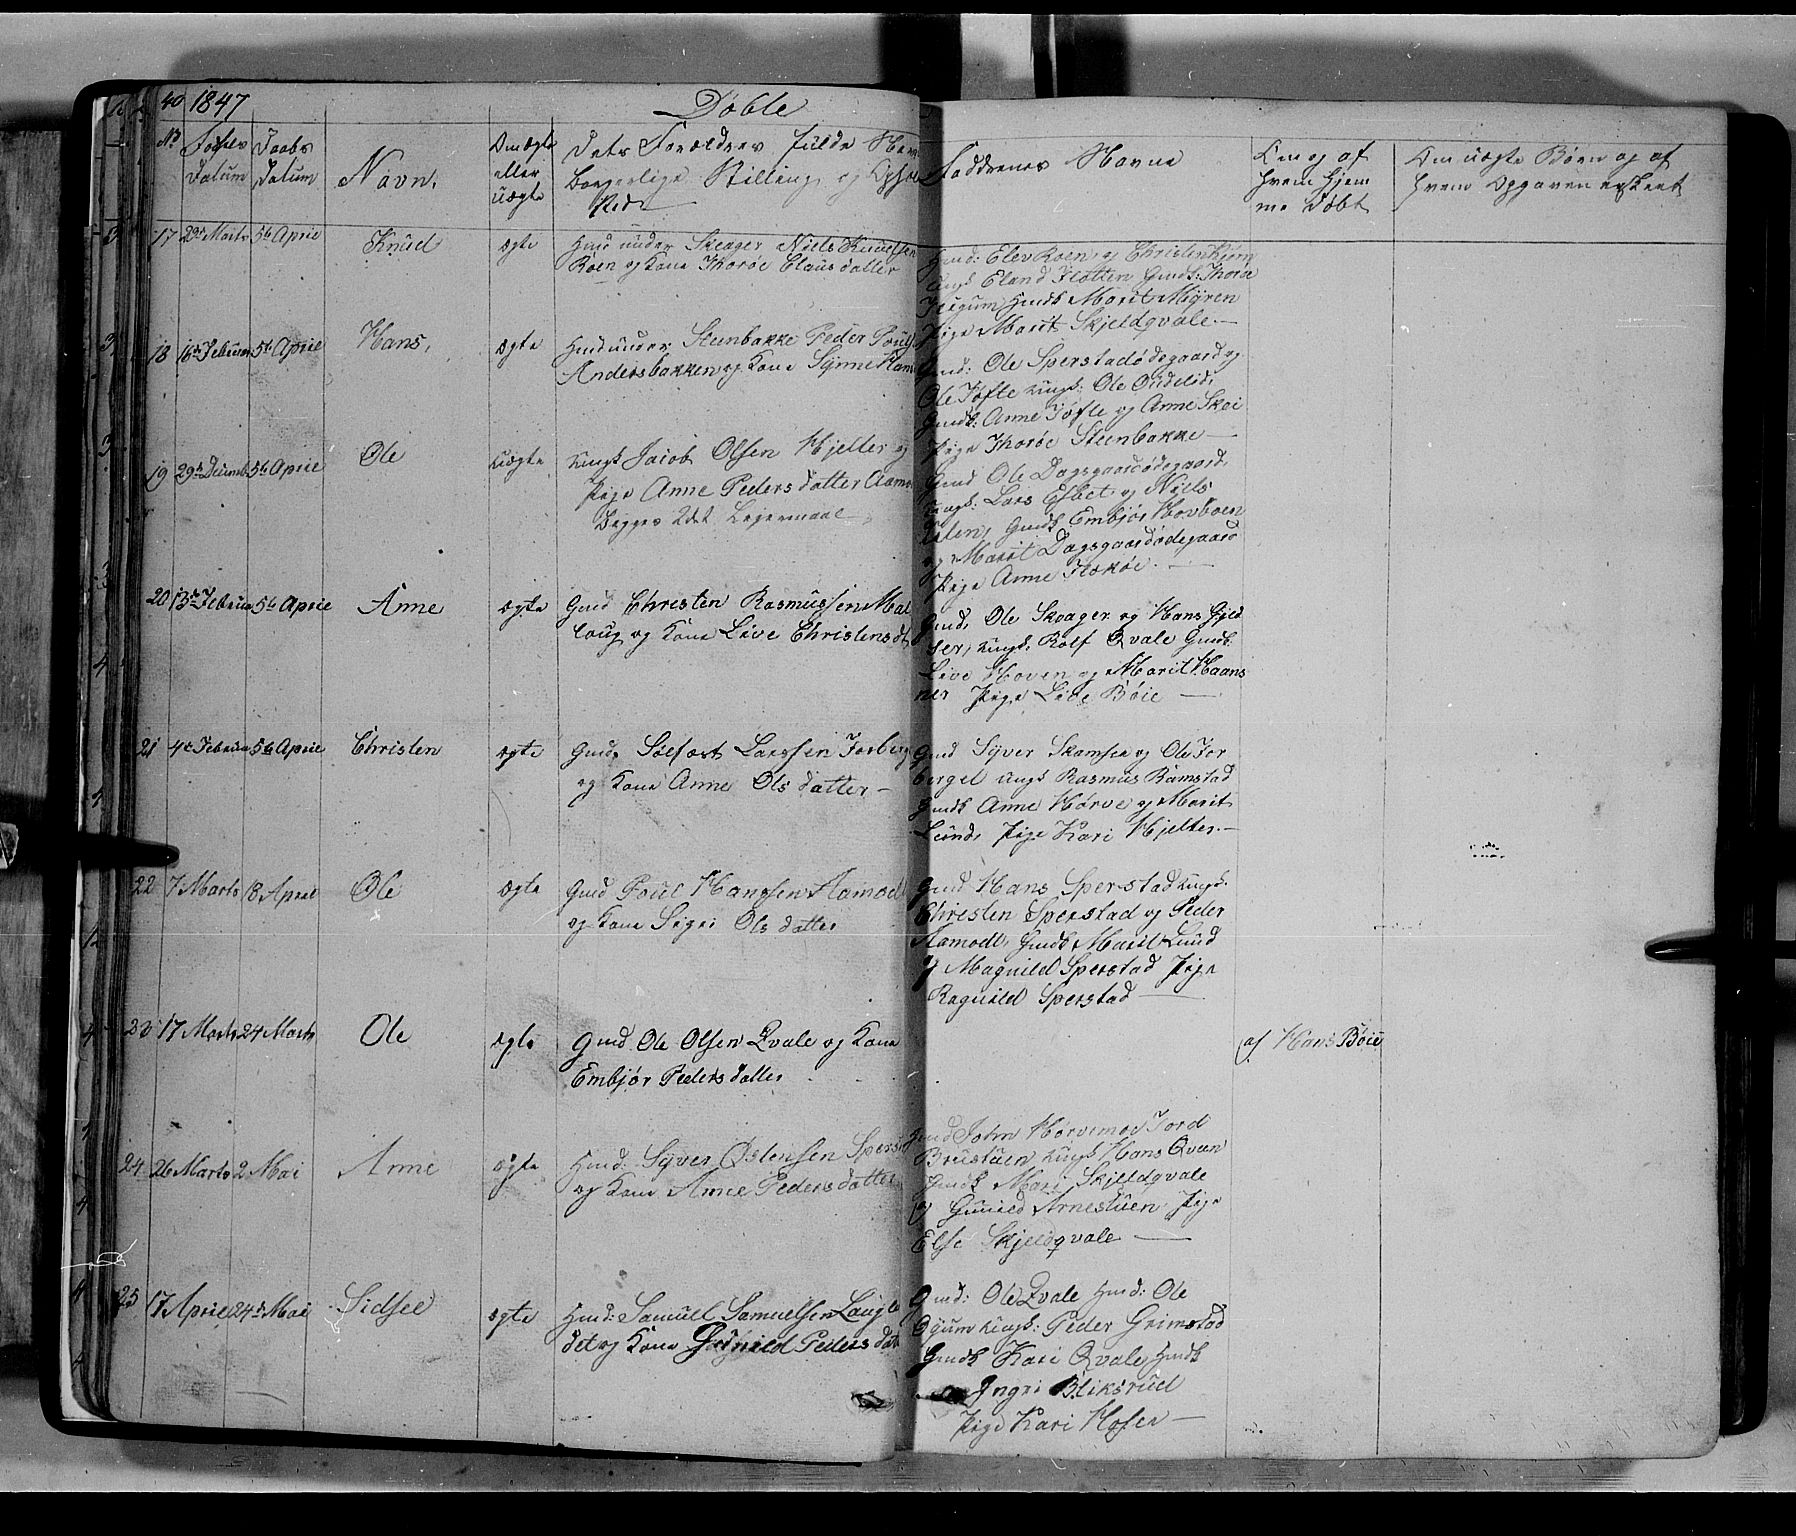 40 1847 Døbte
No Fødsels Datum Daabs Datum Navn. Om ægte eller uægte
Dets Foreldres fulde Navn
borgerlige Stilling og Ophol
sted
Faddrenes Navne
Om og af
hvem hjem
me døbt
Om uægte Børn og af
hvem Opgaven er skeet
17 29 Marts 5te April Knud ægte Hmd under Skeager Niels Knudsen
Roen og Kone Thorøe Clausdatter
Hmd: Elev Roen, og Christen
Ungk Eland Flatten Gmdk: Thorøe
Hmdk Marit Myren
Pige Marit Skjeldqvale.—
18 16de Februar 5te April Hans, ægte Hmd under Steenbakke Peder Pouls
Andersbakken og Kone Synne Hans
Gmd: Ole Sperstadødegaard og
Ole Tofte Ungk: Ole
Gmdk: Anne Tofte og Anne Skei
Pige Thorøe Steenbakke —
19 29de Decemb 5te April Ole uægte Ungk Jacob Olsen Hjelter og
Pige Anne Pedersdatter Aamo
begges 2det Leiermaal
Gmd Ole Dagsgaardødegaard,
Ungk: Lars Esbet og Niels
Dalen, Gmdk Embjør Hovboen
og Marit Dagsgaardødegaard
Pige Anne
20 13de Februar 5te April Anne ægte Gmd Christen Rasmussen Mal
loug og Kone Live Christensdt
Gmd, Ole Skeager og Hans Gjeld
ser, Ungk. Rolf Qvale Gmdk.
Live Hoven og Marit Haans
ner Pige Live Bøie —
21 4de Februar 5te April Christen ægte Gmd, Solfæst Larssen Forberg
og Kone Anne Olsdatter —
Gmd Syver Skamser og Ole For
bergel Ungk Rasmus Ramstad
Gmdk Anne Hørve og Marit
Lunde, Pige Kari Hjelter.—
22 7 Marts 18 April Ole ægte Gmd Poul Hanssen Aamod
og Kone Sigri Olsdatter
Gmd Hans Sperstad Ungk.
Christen Sperstad og Peder
Aamodt, Gmdk Marit Lund
og Magnild Sperstad Pige
Ragnild Sperstad —
23 17 Marts 24 Marts Ole ægte Gmd Ole Olsen Qvale og Kone
Embjør Pedersdatter
af Hans Bøie
24 26 Marts 2 Mai Anne ægte Hmd: Syver Østensen Spers
og Kone Anne Pedersdatter
Hmd John Hørvemoe Tord
Brustuen Ungk Hans Qvam
Gmdk Mari Skjeldqvale
og Gunild Arnestuen Pige
Else Skjeldqvale —
25 17 April 24de Mai Sidsel ægte Hmd: Samuel Samuelsen Laugle
det og Kone Gunild Pedersdat
Gmd: Ole Qvale Hmd: Ole
Øgum Ungk: Peder Grimstad
Gmdk Kari Qvale, Hmdk
Ingri Bliksrud
Pige Kari Hofer —